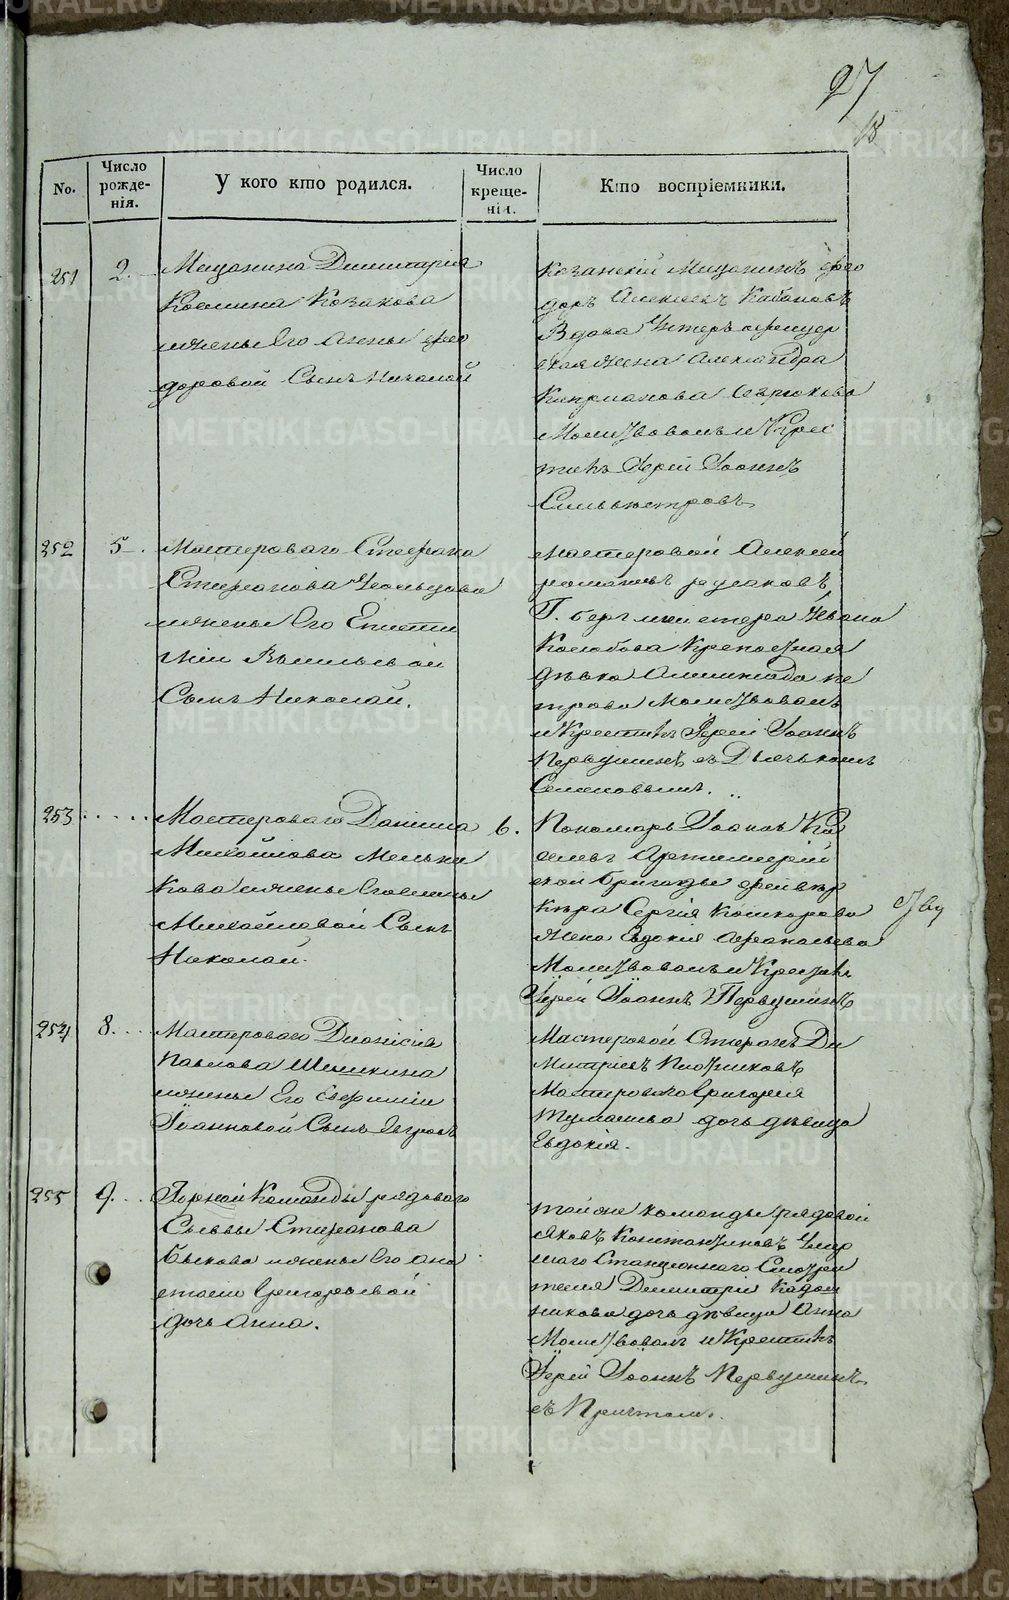 27
18
No.
Число рожденія.
У кого кто родился.
Число крещенія.
Кто воспріемники.
251
2.
Мещанина Димитрія
Козмина Козакова
женъ Его Анны Ѳео
доровой Сынъ Николай
Казанскій Мещанинъ Ѳео
доръ Алексеевъ Кабановъ
Вдова Унтеръ офицер
ская жена Александра
Молитвовалъ и Крес
тилъ Іерей Іоаннъ
Сильвестровъ
252
5.
Мастероваго Стефана
Стефанова
женъ Его Еписти
міи Васильевой
Сынъ Николай.
Мастеровой Алексей
Романовъ русаковъ
Г. берг мейстера Ивана
Колобова Крепостная
девка Алимпіада пе
трова Молитвовалъ
и Крестилъ Іерей Іоаннъ
Первушинъ съ Дьячькомъ
Семеновымъ.
253
Мастероваго Данила
Михайлова Мельни
кова женъ Его Елены
Михайловой Сынъ
Николай.
6.
Пономарь Іоаннъ Ки
селевъ Артиллерій
ской бригады фейвер
кера Сергія Кошкарова
жена Евдокія Афанасьева
Молитвовалъ и Крестилъ
Іерей Іоаннъ Первушинъ
254
8.
Мастероваго Діонісія
Павлова Шишкина
женъ Его Евфиміи
Іоанновой Сынъ Петръ
Мастеровой Стефанъ Ди
митріевъ Плотниковъ
Мастероваго Григорія
Тумашева дочь девица
Евдокія.
255
9.
Горной Команды рядоваго
Саввы Стефанова
Быкова женъ Его Ана
стасіи Григорьевой
дочь Анна.
той же команды рядовой
Яковъ Константиновъ Умер
шаго Станціоннаго Смотри
теля Димитрія Кадош
никова дочь девица Анна
Молитвовалъ и Крестилъ
Іерей Іоаннъ Первушинъ
съ Причтомъ.
METRIKI.GASO-URAL.RU